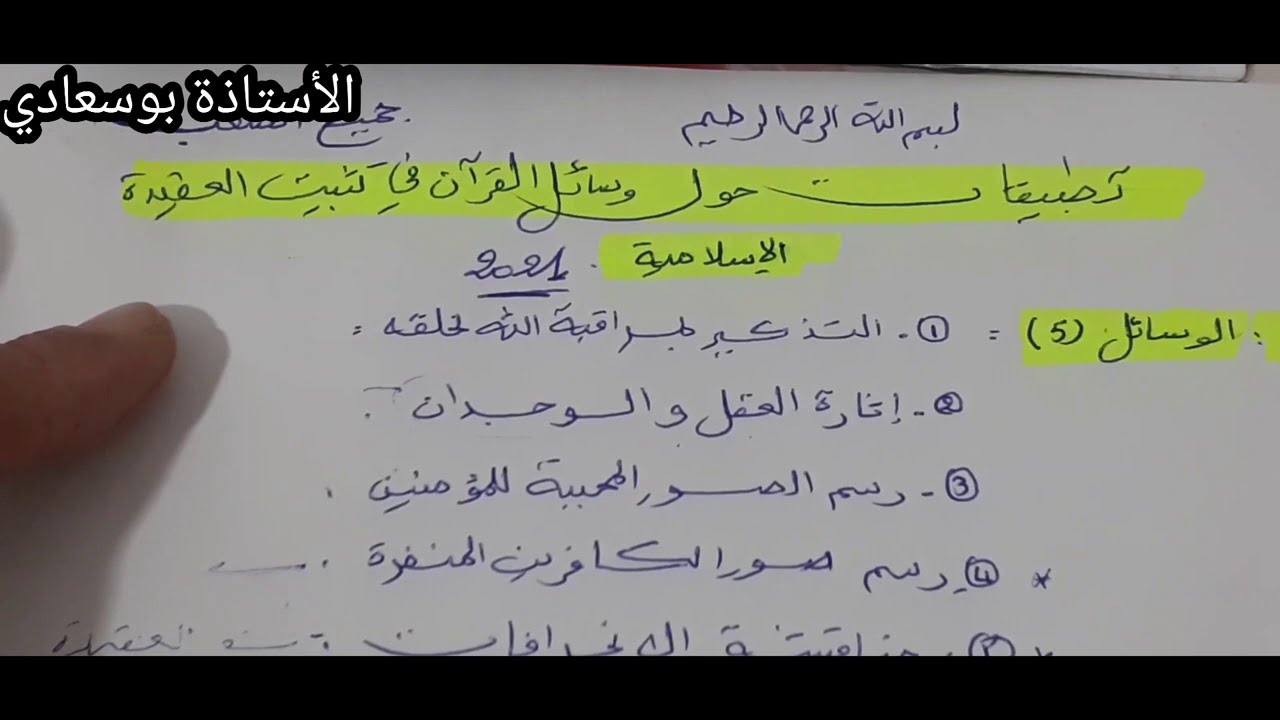 الأستاذة بوسعادي
بسم الله الرحمن الرحيم
جميع الشعب
تطبيقات حول وسائل القرآن في تثبيت العقيدة
الإسلامية. 2021
: الوسائل (5) = ①. التذكير بمراقبة الله لخلقه =
②- إثارة العقل و الوجدان.
③- رسم الصور المحببة للمؤمنين.
* ④. رسم صور الكافرين المنفرة.
مناقشة الانحرافات